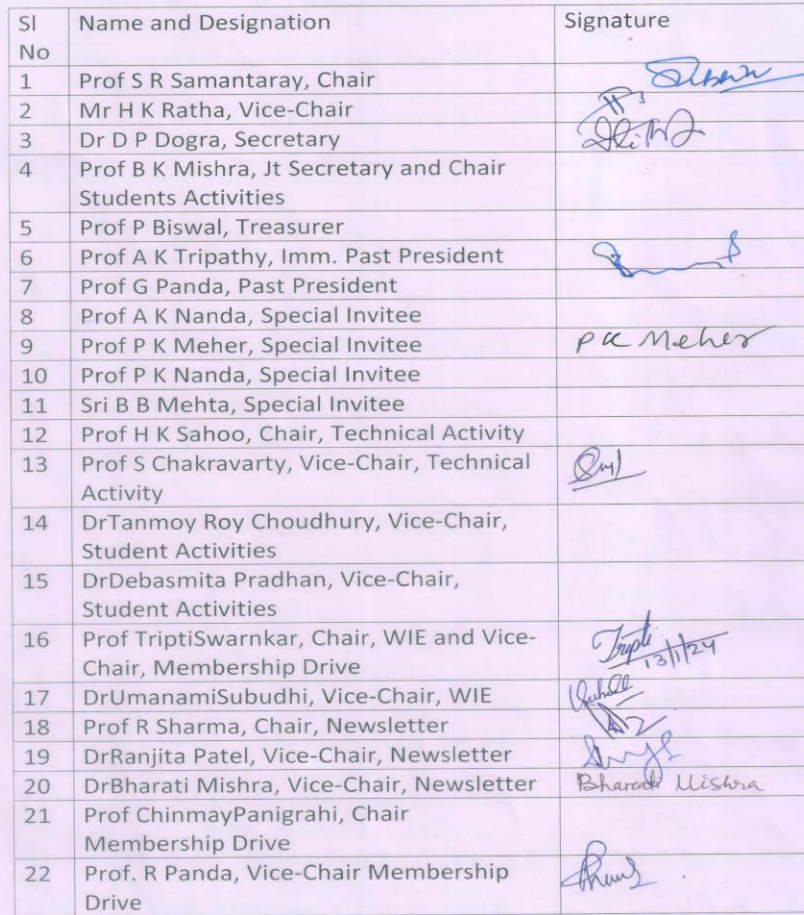 Sl No Name and Designation Signature
1 Prof S R Samantaray, Chair
2 Mr H K Ratha, Vice-Chair
3 Dr D P Dogra, Secretary
4 Prof B K Mishra, Jt Secretary and Chair
Students Activities
5 Prof P Biswal, Treasurer
6 Prof A K Tripathy, Imm. Past President
7 Prof G Panda, Past President
8 Prof A K Nanda, Special Invitee
9 Prof P K Meher, Special Invitee P K Meher
10 Prof P K Nanda, Special Invitee
11 Sri B B Mehta, Special Invitee
12 Prof H K Sahoo, Chair, Technical Activity
13 Prof S Chakravarty, Vice-Chair, Technical
Activity
14 DrTanmoy Roy Choudhury, Vice-Chair,
Student Activities
15 DrDebasmita Pradhan, Vice-Chair,
Student Activities
16 Prof TriptiSwarnkar, Chair, WIE and Vice- Tripti
Chair, Membership Drive 13/1/24
17 DrUmanamiSubudhi, Vice-Chair, WIE
18 Prof R Sharma, Chair, Newsletter
19 DrRanjita Patel, Vice-Chair, Newsletter
20 DrBharati Mishra, Vice-Chair, Newsletter Bharati Mishra
21 Prof ChinmayPanigrahi, Chair
Membership Drive
22 Prof. R Panda, Vice-Chair Membership
Drive